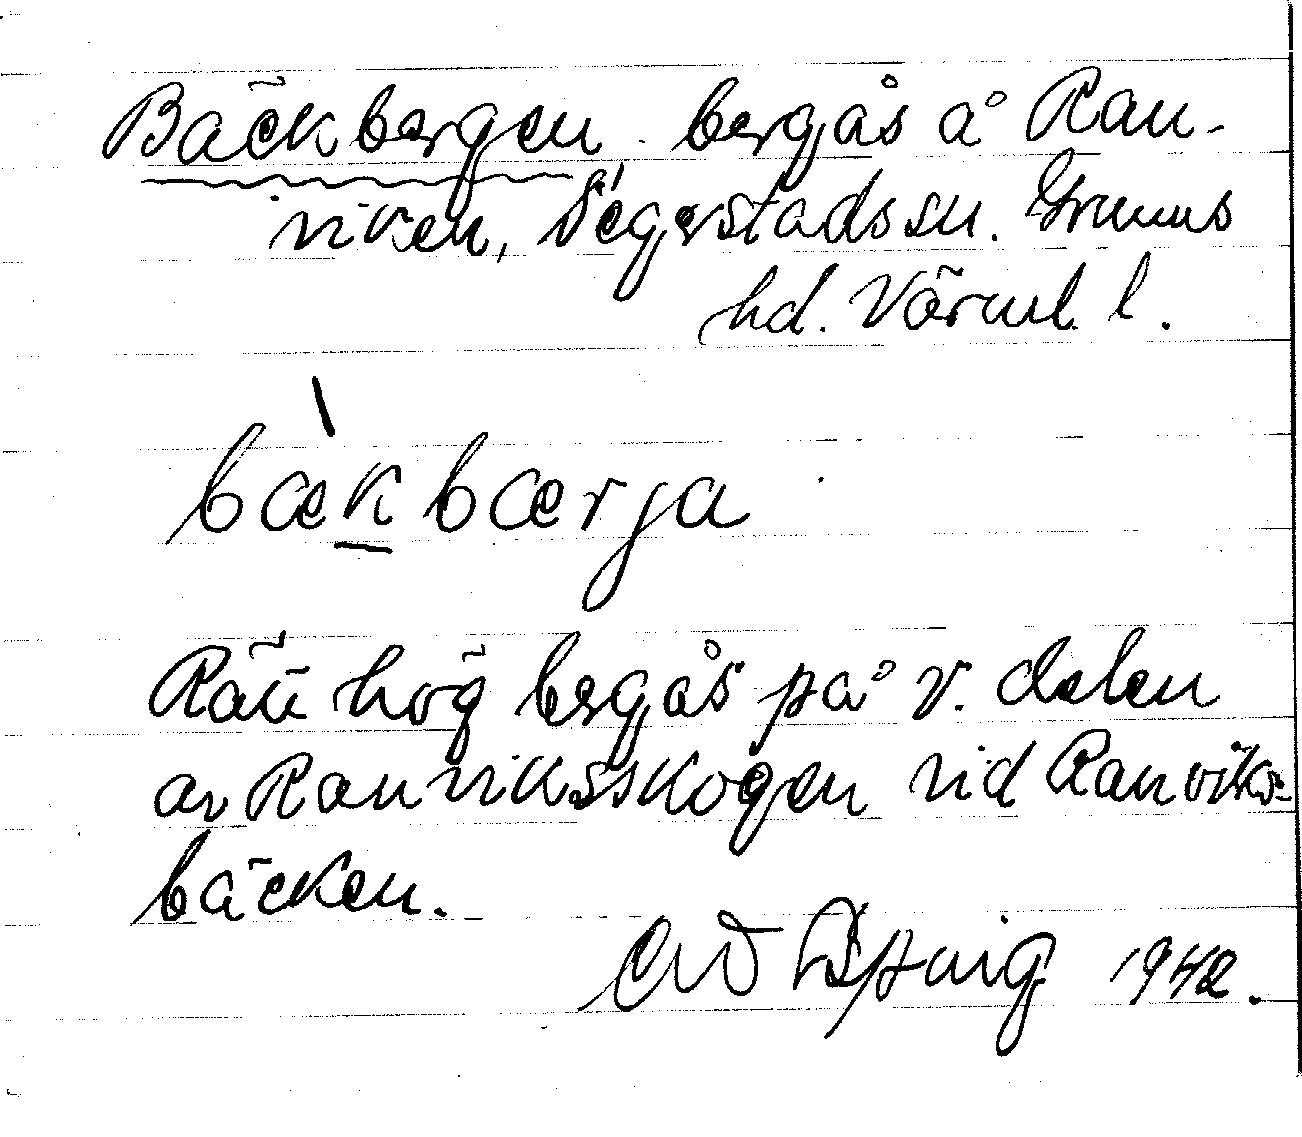 Bäckbergen, bergås å Ran-
viken, Segerstads sn. Grums
hd. Värml. l.
bækbærja
Rätt hög bergås på v. delen
av Ranviksskogen vid Ranviks-
bäcken.
1942.